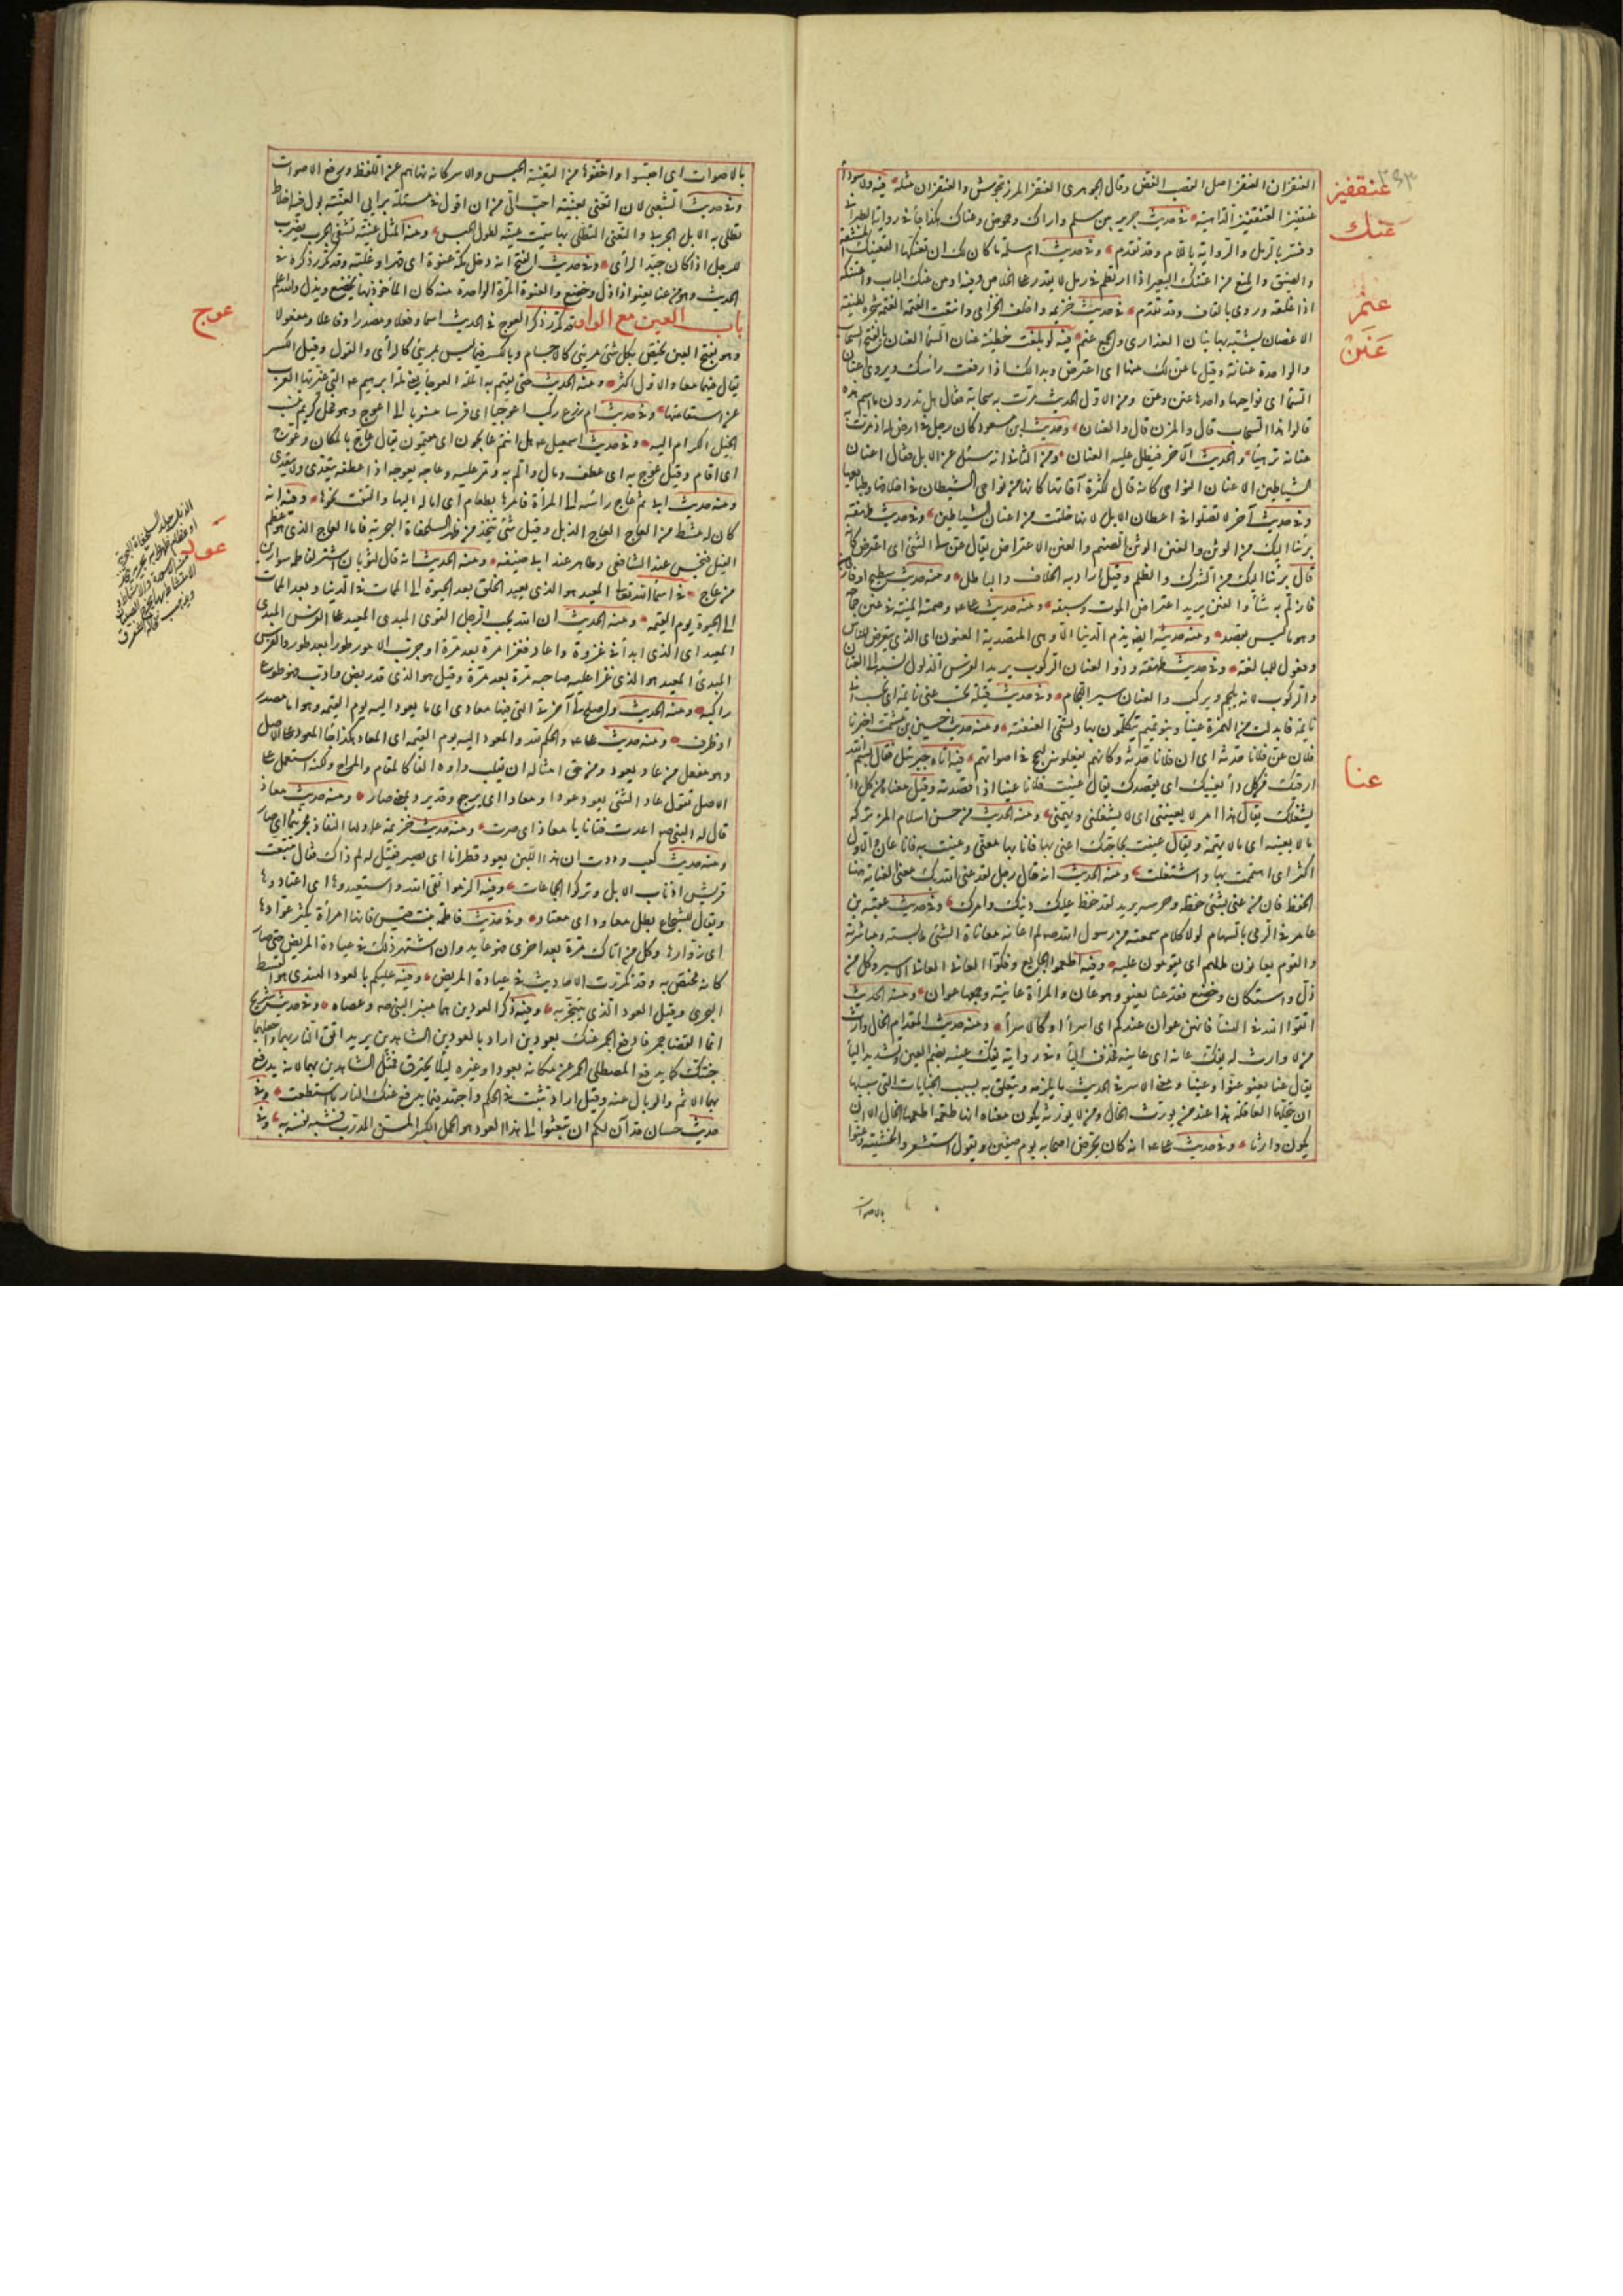 عنقفيز
عنك
عنم
عنن
عنا
العنقزان العنقز اصل القصب الغض وقال الجوهرى العنقز المرزنجوش والعنقزان مثله فيه ولا سوداء
عنقفيز العنقفيز الداهية فى حديث جرير بين سلم واراك وحموض وعناك هكذا جاء فى رواية الطبرانى
وفسر بالرمل والرواية باللام وقد تقدم وفى حديث ام سلمة ما كان لك ان تعنكيها التعنيك المشقة
والضيق والمنع من اعتنك البعير اذا ارتطم فى رمل لا يقدر على الخلاص منه او من عنك الباب واعنكه
اذا غلقه وروى بالقاف وقد تقدم فى حديث خزيمة واخلف الخزامى واينعت العنمة العنمة شجرة لطيفة
الاغصان يشبه بها بنان العذارى والجمع عنم فيه لو بلغت خطيئته عنان السماء العنان بالفتح السحاب
والواحدة عنانة وقيل ما عن لك منها اى اعترض وبدا لك اذا رفعت رأسك ويروى اعنان
السماء اى نواحيها واحدها عنن وعن ومن الاول الحديث مرت به سحابة فقال هل تدرون ما اسم هذه
قالوا هذا السحاب قال والمزن قال والعنان وحديث ابن مسعود كان رجل فى ارض له اذ مرت به
عنانة ترهيأ والحديث الآخر فيطل عليه العنان ومن الثانى انه سئل عن الابل فقال اعنان
الشياطين الاعنان النواحى كانه قال لكثرة آفاتها كانها من نواحى الشيطان فى اخلاقها وطبائعها
وفى حديث آخر لا تصلوا فى اعطان الابل لانها خلقت من اعنان الشياطين وفى حديث طهفة
برئنا اليك من الوثن والعنن الوثن الصنم والعنن الاعتراض يقال عن لى الشئ اى اعترض كانه
قال برئنا اليك من الشرك والظلم وقيل اراد به الخلاف والباطل ومنه حديث سطيح او فاز
فازلم به شأو العنن يريد اعتراض الموت وسبقه ومنه حديث على دهمته المنية فى عنن جماحه
وهو ما ليس بقصد ومنه حديثه ايضا يذم الدنيا الا وهى المتصدية العنون اى التى تتعرض للناس
وفعول للمبالغة وفى حديث طهفة وذو العنان الركوب يريد الفرس الذلول نسبه الى العنان
والركوب لانه يلجم ويركب والعنان سير اللجام وفى حديث قيلة تحسب عنى نائمة اى تحسب انى
نائمة فابدلت من الهمزة عينا وبنو تميم يتكلمون بها وتسمى العنعنة ومنه حديث حصين بن مشمت اخبرنا
فلان عن فلانا حدثه اى ان فلانا حدثه وكانهم يفعلونه لبحح فى اصواتهم فيه اتاه جبرئيل فقال بسم الله
ارقيك من كل داء يعنيك اى يقصدك يقال عنيت فلانا عنيا اذا قصدته وقيل معناه من كل داء
يشغلك يقال هذا امر لا يعنينى اى لا يشغلنى ويهمنى ومنه الحديث من حسن اسلام المرء تركه
ما لا يعنيه اى ما لا يهمه ويقال عنيت بحاجتك اعنى بها فانا بها معنى وعنيت به فانا عان والاول
اكثر اى اهتممت بها واشتغلت ومنه الحديث انه قال رجل لقد عنى الله بك معنى العناية هنا
الحفظ فان من عنى بشئ حفظه وحرسه يريد لقد حفظ عليك دينك وامرك وفى حديث عقبة بن
عامر فى الرمى بالسهام لولا كلام سمعته من رسول الله لم اعانه معاناة الشئ ملابسته ومباشرته
والقوم يعانون مالهم اى يقومون عليه وفيه اطعموا الجايع وفكوا العانى العانى الاسير وكل من
ذل واستكان وخضع فقد عنا يعنو وهو عان والمرأة عانية وجمعها عوان ومنه الحديث
اتقوا الله فى النساء فانهن عوان عندكم اى اسراء او كالاسراء ومنه حديث المقدام الخال وارث
من لا وارث له يفك عانه اى عانيه فحذف الياء وفى رواية يفك عنيه بضم العين وتشديد الياء
يقال عنا يعنو عنوا وعنيا ومعنى الاسر فى الحديث ما يلزمه ويتعلق به بسبب الجنايات التى سبيلها
ان تتحملها العاقلة هذا عند من يورث الخال ومن لا يورثه يكون معناه انها طعمة اطعمها الخال لا ان
يكون وارثا وفى حديث على انه كان يحرض اصحابه يوم صفين ويقول استشعروا الخشية وعنوا
بالاصوات
بالاصوات اى احبسوا واخفوها من التعنية الحبس والاسر كانه نهاهم عن اللغط ورفع الاصوات
وفى حديث الشعبى لان اتعنى بعنية احب الى من ان اقول فى مسئلة برأيى العنية بول فيه اخلاط
تطلى به الابل الجربى والتعنى التطلى بها سميت عنية لطول الحبس ومنه المثل عنية تشفى الجرب يضرب
للرجل اذا كان جيد الرأى وفى حديث الفتح انه دخل مكة عنوة اى قهرا وغلبة وقد تكرر ذكره فى
الحديث وهو من عنا يعنو اذا ذل وخضع والعنوة المرة الواحدة منه كان المأخوذ بها يخضع ويذل والله اعلم
باب العين مع الواو قد تكرر ذكر العوج فى الحديث اسما وفعلا ومصدرا وفاعلا ومفعولا
عوج
وهو بفتح العين مختص بكل شئ مرئى كالاجسام وبالكسر فيما ليس بمرئى كالرأى والقول وقيل الكسر
يقال فيهما معا والاول اكثر ومنه الحديث حتى يقيم به الملة العوجاء يعنى ملة ابرهيم التى غيرتها العرب
عن استقامتها وفى حديث ام زرع ركب اعوجيا اى فرسا منسوبا الى اعوج وهو فحل كريم تنسب
الخيل الكرام اليه وفى حديث اسمعيل هل انتم عايجون اى مقيمون يقال عاج بالمكان وعوج
اى اقام وقيل عوج به اى عطف ومال والم به ومر عليه وعاجه يعوجه اذا عطفه يتعدى ولا يتعدى
ومنه حديث ابى ذر ثم عاج رأسه الى المرأة فامرها بطعام اى اماله اليها والتفت نحوها وفيه انه
كان له مشط من العاج العاج الذبل وقيل شئ يتخذ من ظهر السلحفاة البحرية فاما العاج الذى هو عظم
الفيل فنجس عند الشافعى وطاهر عند ابى حنيفة ومنه الحديث انه قال لثوبان اشتر لفاطمة سوارين
عود
من عاج فى اسماء الله تعالى المعيد هو الذى يعيد الخلق بعد الحيوة الى الممات فى الدنيا وبعد الممات
الى الحيوة يوم القيمة ومنه الحديث ان الله يحب الرجل القوى المبدى المعيد على الفرس المبدى
المعيد اى الذى ابدأ فى غزوة واعاد فغزا مرة بعد مرة وجرب الامور طورا بعد طور والفرس
المبدئ المعيد هو الذى غزا عليه صاحبه مرة بعد مرة وقيل هو الذى قد ريض وادب فهو طوع
راكبه ومنه الحديث واصلح لى آخرتى التى فيها معادى اى ما يعود اليه يوم القيمة وهو اما مصدر
او ظرف ومنه حديث على والحكم الله والمعود اليه يوم القيمة اى المعاد هكذا جاء المعود على الاصل
وهو مفعل من عاد يعود ومن حق امثاله ان تقلب واوه الفا كالمقام والمراح ولكنه استعمل على
الاصل تقول عاد الشئ يعود عودا ومعادا اى رجع وقد يرد بمعنى صار ومنه حديث معاذ
قال له النبى اعدت فتانا يا معاذ اى صرت ومنه حديث خزيمة عاد لها النقاد مجرنثما اى صار
ومنه حديث كعب وددت ان هذا اللبن يعود قطرانا اى يصير فقيل له لم ذاك فقال تتبعت
قريش اذناب الابل وتركوا الجماعات وفيه الزموا تقى الله واستعيدوها اى اعتادوها
ويقال للشجاع بطل معاود اى معتاد وفى حديث فاطمة بنت قيس فانها امرأة يكثر عوادها
اى زوارها وكل من اتاك مرة بعد اخرى فهو عايد وان اشتهر ذلك فى عيادة المريض حتى صار
كانه مختص به وقد تكررت الاحاديث فى عيادة المريض وفيه عليكم بالعود الهندى هو القسط
البحرى وقيل العود الذى يتبخر به وفيه ذكر العودين هما منبر النبى وعصاه وفى حديث شريح
انما القضاء جمر فادفع الجمر عنك بعودين اراد بالعودين الشاهدين يريد اتق النار بهما واجعلهما
جنتك كما يدفع المصطلى الجمر عن مكانه بعود او غيره لئلا يحترق فمثل الشاهدين بهما لانه يدفع
بهما الاثم والوبال عنه وقيل اراد تثبت فى الحكم واجتهد فيما يدفع عنك النار ما استطعت وفى
حديث حسان قد آن لكم ان تبعثوا الى هذا العود هو الجمل الكبير المسن المدرب فشبه نفسه به وفى